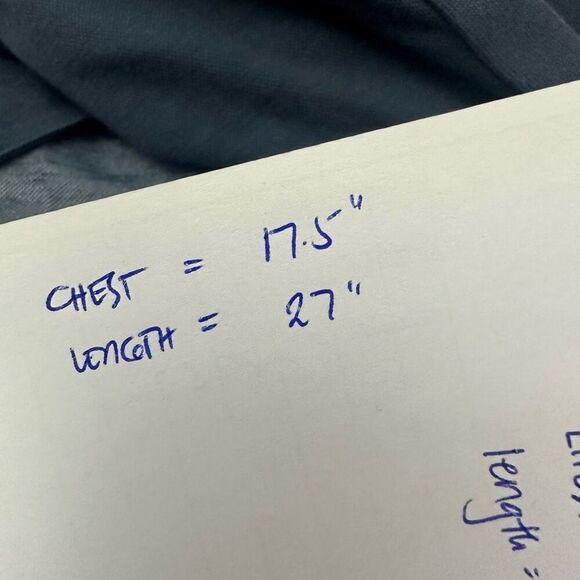 CHEST = 17.5"
LENGTH = 27"
length =